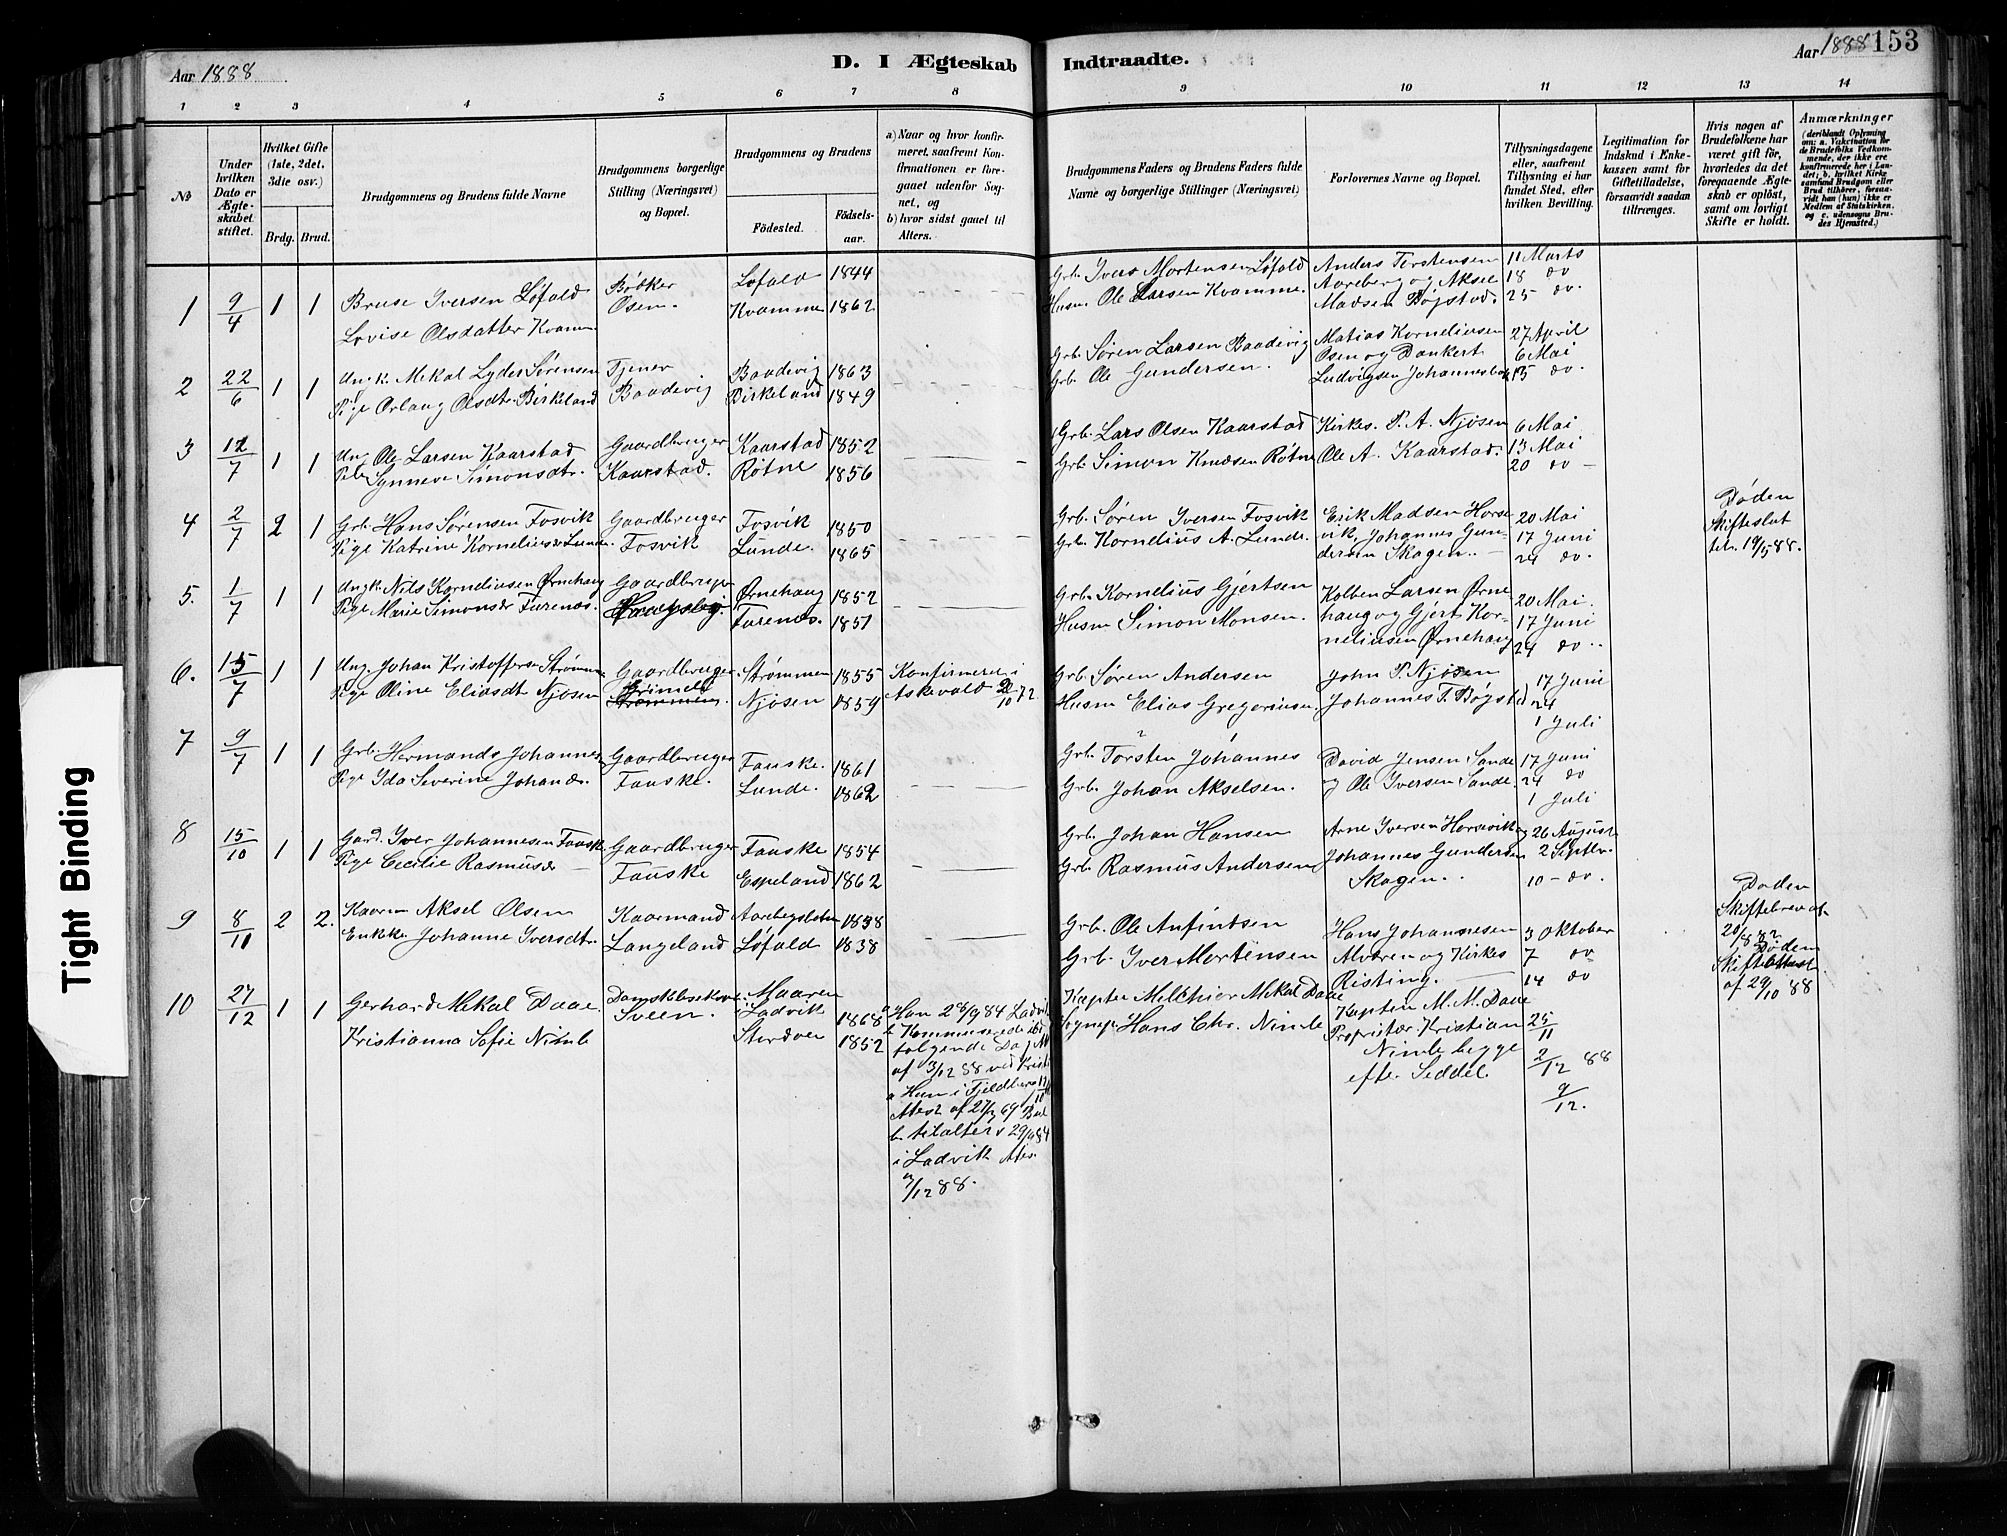 Aar 1888
D. I Ægteskab Indtraadte.
Aar 1888 153
1 2 3 4 5 6 7 8 9 10 11 12 13 14
№
Under hvilken Dato er Ægteskabet stiftet.
Hvilket Gifte (1ste, 2det, 3die osv.)
Brdg. Brud.
Brudgommens og Brudens fulde Navne
Brudgommens borgerlige Stilling (Næringsvei) og Bopæl.
Brudgommens og Brudens
Födested. Födselsaar.
a) Naar og hvor konfirmeret, saafremt Konfirmationen er foregaaet udenfor Sognet, og
b) hvor sidst gaaet til Alters.
Brudgommens Faders og Brudens Faders fulde Navne og borgerlige Stillinger (Næringsvei)
Forlovernes Navne og Bopæl.
Tillysningsdagene eller, saafremt Tillysning ei har fundet Sted, efter hvilken Bevilling.
Legitimation for Indskud i Enkekassen samt for Giftetilladelse, forsaavidt saadan tiltrænges.
Hvis nogen af Brudefolkene har været gift för, hvorledes da det foregaaende Ægteskab er oplöst, samt om lovligt Skifte er holdt.
Anmærkninger
(deriblandt Oplysning om: a. Vakcination for de Brudefolks Vedkommende, der ikke ere konfirmerede her i Landet; b. hvilket Kirkesamfund Brudgom eller Brud tilhörer, forsaavidt han (hun) ikke er Medlem af Statskirken, og c. udensogns Brudes Hjemsted.)
1 9/4 1 1 Bruse Iversen Løfald Bødker Løfald 1844 Grb. Ivers Mortensen Løfald Anders Terstensen 11 Marts
Lovise Olsdatter Kvamm Osen. Kvamme 1862 Husm. Ole Larsen Kvamme. Aareberg og Aksel 18 do
Madsen Bøgstad. 25 do.
2 22/6 1 1 Ungk. Mekal Lyder Sørensen Tjener Baadevig 1863 Grb. Søren Larsen Baadevig Matias Korneliusen 27 April
Pige Orlaug Olsdt. Birkeland Baadevig Birkeland 1849 Grb. Ole Gundersen. Osen og Dankert 6 Mai
Ludvigsen Johannesbog 13 do.
3 12/7 1 1 Ung. Ole Larsen Kaarstad Gaardbruger Kaarstad 1852 Grb. Lars Olsen Kaarstad Kirkes. P. A. Njøsen 6 Mai
Synneve Simonsdt. Kaarstad. Røtne 1856 Grb. Simon Knudsen Røtne Ole A. Kaarstad. 13 Mai
20 do
4 2/7 2 1 Grb. Hans Sørensen Fosvik Gaardbruger Fosvik 1850 Grb. Søren Iversen Fosvik Erik Madsen Horse 20 Mai Døden
Pige Katrine Korneliusd. Lunde Fosvik Lunde. 1865 Grb. Kornelius A. Lunde. vik, Johannes Gun 17 Juni Skifteslut
dersen Skagen. 24 do. 19/5 88.
5. 1/7 1 1 Ungk. Nils Korneliusen Ørnehaug Gaardbruger Ørnehaug 1852 Grb. Kornelius Gjertsen Kolben Larsen Ørne 20 Mai
Pige Marie Simonsdr Furenæs. Furenæs. 1851 Husm Simon Monsen. haug og Gjert Kor 17 Juni
neliusen Ørnehaug 24 do
6. 15/7 1 1 Ung. Johan Kristoffersen Strømm Gaardbruger Strømmen 1855 Konfirmeret i Grb. Søren Andersen John P. Njøsen 17 Juni
Pige Oline Eliasdt Njøsen Grimelid Strømmen. Njøsen 1859 Askevold 2/10 72 Husm Elias Gregoriusen. Johannes T. Bøgstd 24
1 Juli
7 9/7 1 1 Grb. Hermands Johannes Gaardbruger Fauske. 1861 Grb. Torsten Johannes David Jensen Sande 17 Juni
Pige Ida Severine Johansdr. Fauske. Lunde. 1862 Grb. Johan Akselsen. og Ole Iversen Sande. 24 do
1 Juli
8 15/10 1 1 Iver Johannesen Fausk. Gaardbruger Fauske 1854 Grb. Johan Hansen Arne Iversen Horsevik 26 August
Pige Cecilie Rasmusdr Fauske Espeland 1862 Grb. Rasmus Andersen Johannes Gundersen 2 Septbr.
Skagen. 10 do.
9 8/11 2 2. Kaarm Aksel Olsen Kaarmand 1838 Grb. Ole Anfindsen Hans Johannesen 3 Oktober Døden
Enkke Johanne Iversdt. Langeland Løfald 1838 Grb. Iver Mortensen Alværen og Kirkes 7 do Skiftebrev af
Risting. 14 do 20/8 82
Døden
Skifteattest
af 29/10 88
10 27/12 1 1 Gerhard Mekal Daae. Maaren i Ladvik 1868 Han 28/9 84 Ladvik Kapten Melchior Mekal Daae Kapten M. M. Daae 25/11
Kristianna Sofie Nimb Sveen. Stordøen 1852 Sognep. Hans Chr. Nimb Proprietær Kristian 2/12 88
følgende Dag Att Nimb begge 9/12.
af 3/12 88 ved efter Seddel.
Hun i Fjeldberg
Atest af 27/ 69
b. til alters 29/ 84
i Ladvik Ates.
/12 88.
Tight Binding